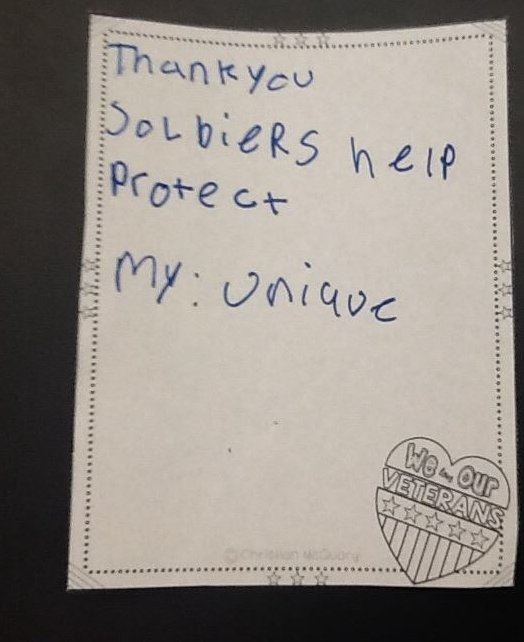 Thankyou
SoLbieRS help
Protect
My: Unique
We Our
VETERANS
© Christian McGuary